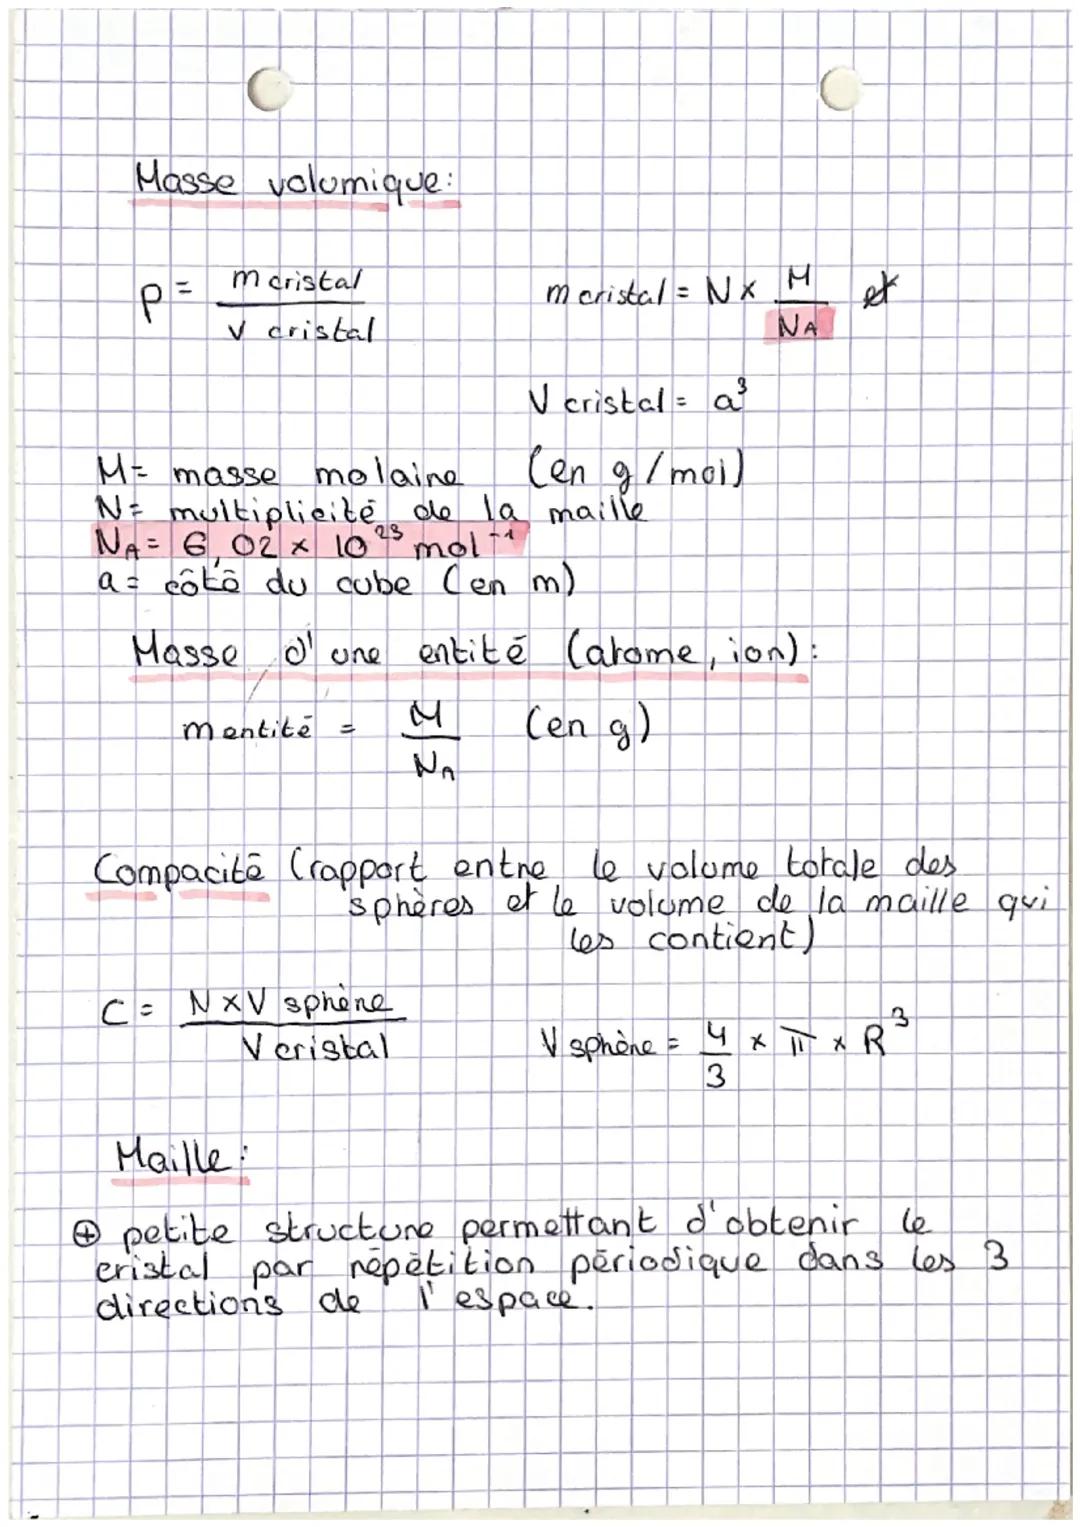 Masse volumique:
ρ = m cristal / v cristal
m cristal = N × M / NA et
V cristal = a³
M = masse molaire (en g/mol)
N = multiplicité de la maille
NA = 6,02 × 10²³ mol⁻¹
a = côté du cube (en m)
Masse d'une entité (atome, ion):
m entité = M / NA (en g)
Compacité (rapport entre le volume totale des
sphères et le volume de la maille qui
les contient)
C = N × V sphère / V cristal
V sphère = 4/3 × π × R³
Maille:
⊕ petite structure permettant d'obtenir le
cristal par répétition périodique dans les 3
directions de l'espace.